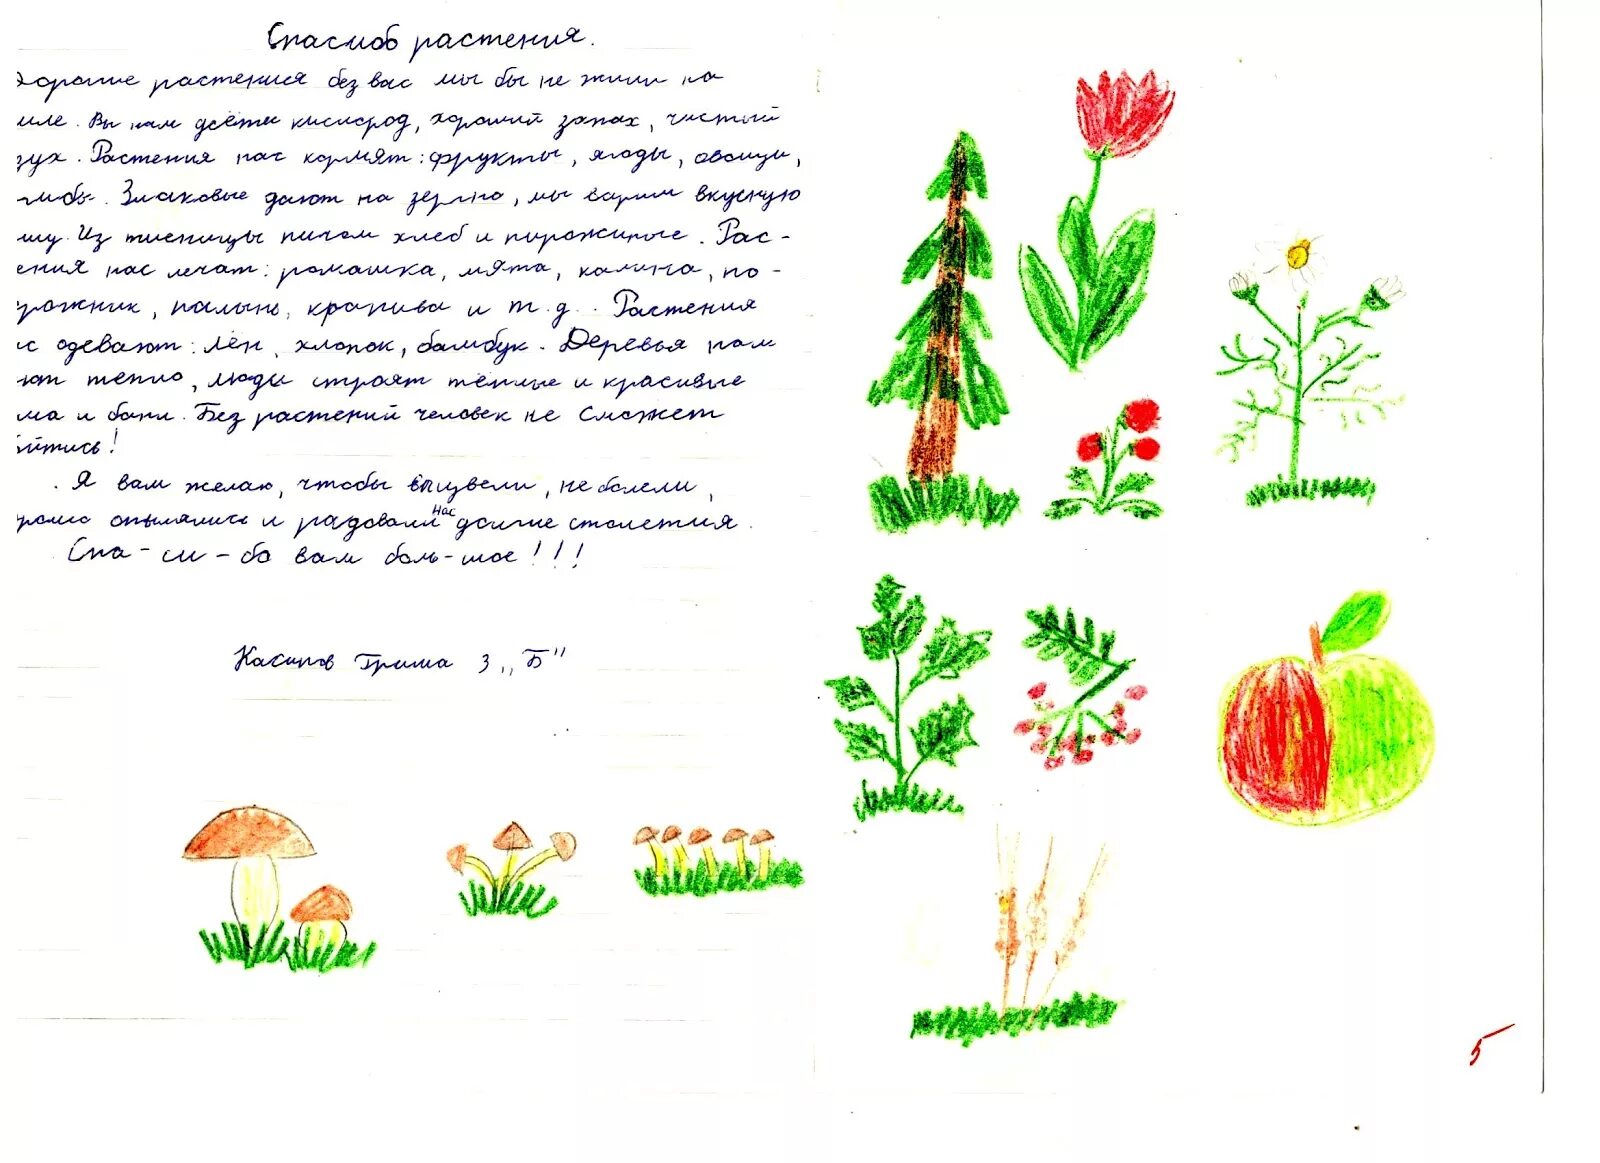 Спасиоб растения.
хорошие растения без вас мы бы не жили на
мле. Вы нам даёте кислород, хороший запах, чистый
зух. Растения нас кормят: фрукты, ягоды, овощи,
рибы. Злаковые дают на зерно, мы варим вкусную
шу. Из пшеницы пичом хлеб и пирожиные. Рас-
ения нас лечат: ромашка, мята, калина, по-
рожник, палынь, крапива и т.д.. Растения
с одевают: лён, хлопок, бамбук. Деревья нам
ют тепло, люди строят тёплые и красивые
ма и бани. Без растений человек не сможет
йтись!
Я вам желаю, чтобы вы цвели, не болели,
рошо опылялись и радовали нас долгие столетия.
Спа-си-бо вам боль-шое!!!
Касипов Гриша 3 „Б"
5